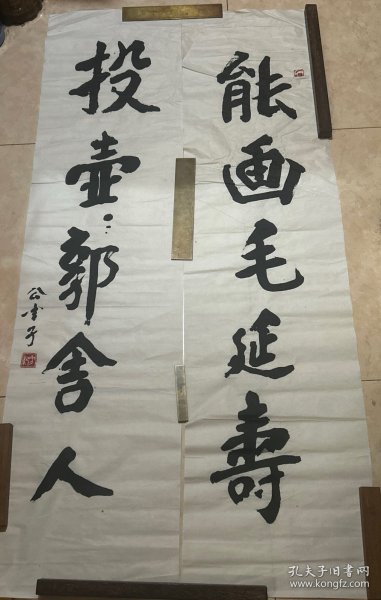 能画毛延壽
投壺郭舍人
孔夫子旧書网
www.kongfz.com